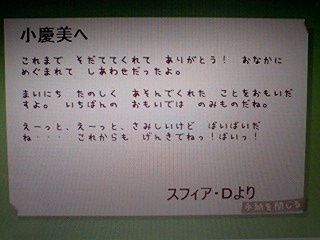 小慶美へ
これまで そだててくれて ありがとう! おなかに
めぐまれて しあわせだったよ。
まいにち たのしく あそんでくれた ことをおもいだ
すよ。 いちばんの おもいでは のみものだね。
えーっと、えーっと、さみしいけど ばいばいだ
ね・・・ これからも げんきでねっ!ばいっ!
スフィア・Dより
手紙を閉じる